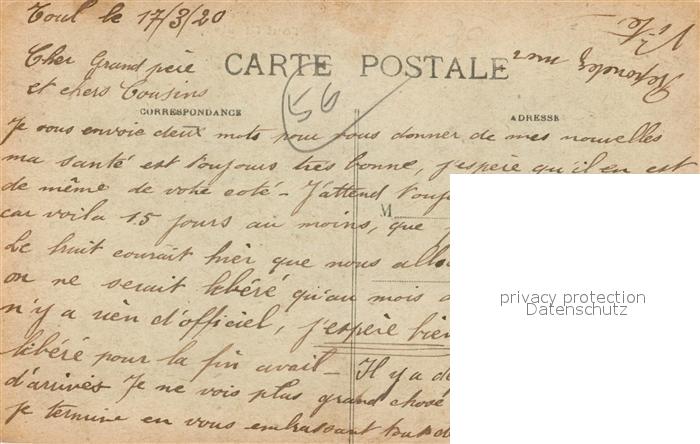 Toul le 17/3/20
Cher Grand père
et chers Cousins
CARTE POSTALE
56
CORRESPONDANCE
ADRESSE
Je vous envoie deux mots pour vous donner de mes nouvelles
ma santé est toujours très bonne, j'espère qu'il en est
de même de votre coté - J'attend
M
car voila 15 jours au moins, que
Le bruit courait hier que nous
on ne serait libéré qu'au mois
n'y a rien d'officiel, j'espère bien
libéré pour la fin avril - Il y a
d'arrivés Je ne vois plus grand chose
je termine en vous embrassant tous
privacy protection
Datenschutz